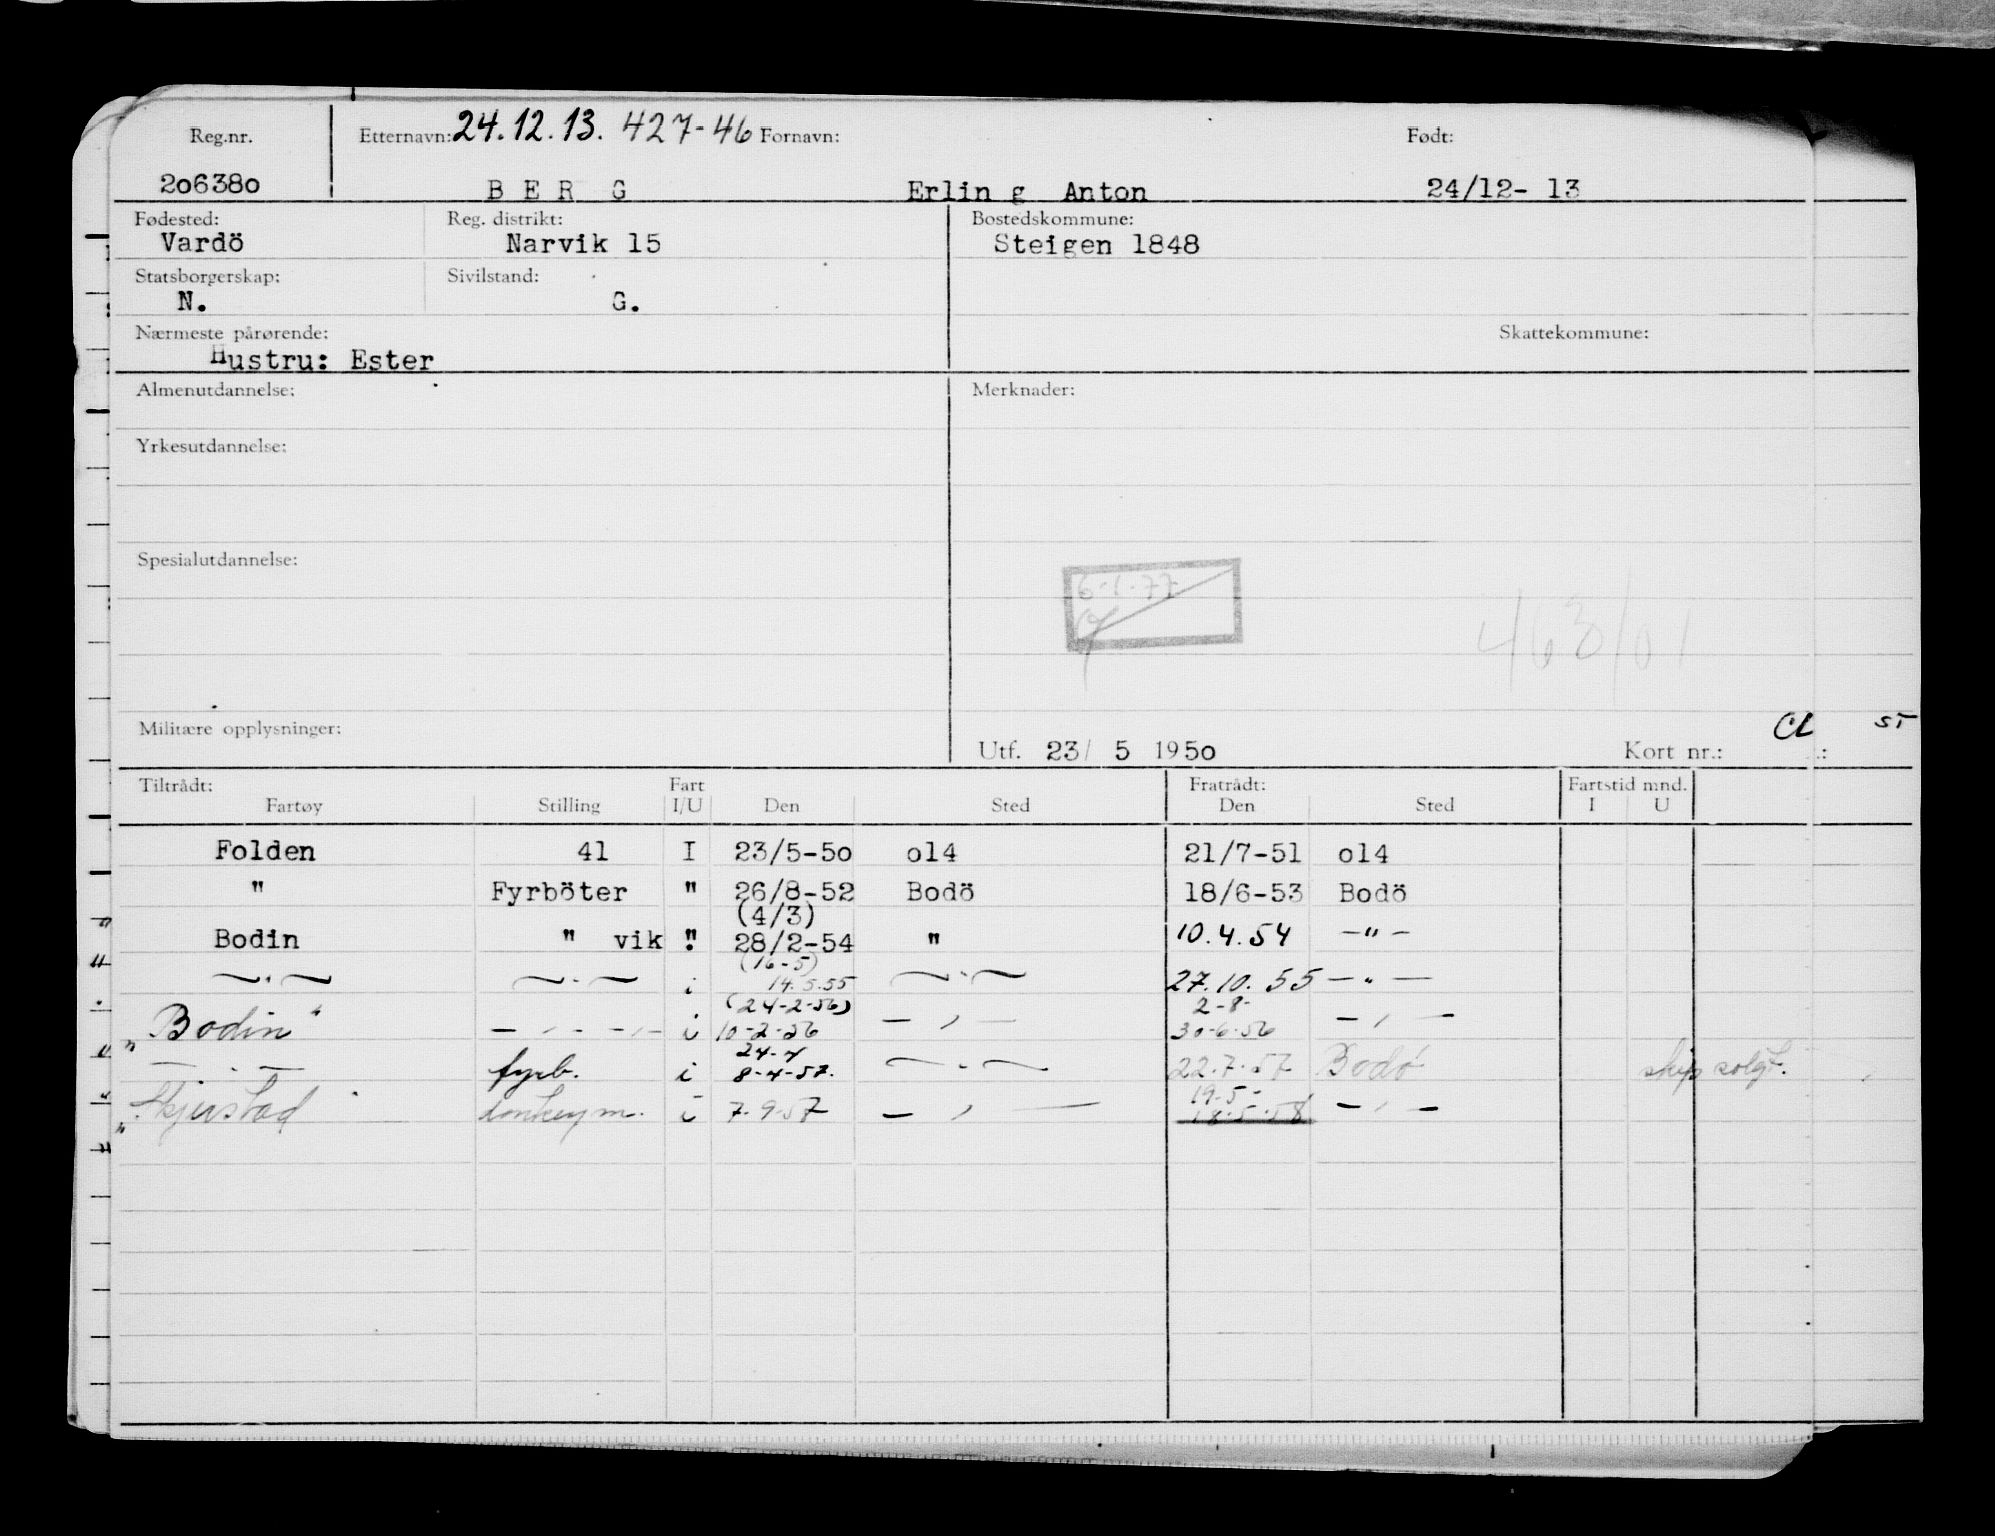 Reg.nr. Etternavn: 24.12.13. 427-46 Fornavn: Født:
2o638o B E R G Erlin g Anton 24/12- 13
Fødested: Reg. distrikt: Bostedskommune:
Vardö Narvik 15 Steigen 1848
Statsborgerskap: Sivilstand:
N. G.
Nærmeste pårørende: Skattekommune:
Hustru: Ester
Almenutdannelse: Merknader:
Yrkesutdannelse:
Spesialutdannelse:
6-1-77
463/01
Militære opplysninger:
CL ST
Utf. 23/ 5 1950 Kort nr.:
Tiltrådt: Fart Fratrådt: Fartstid mnd.
Fartøy Stilling I/U Den Sted Den Sted I U
Folden 41 I 23/5-5o o14 21/7-51 o14
" Fyrböter " 26/8-52 Bodö 18/6-53 Bodö
(4/3)
Bodin " vik " 28/2-54 " 10.4.54 —"—
(16-5)
—"— —"— i 14.5.55 —"— 27.10.55 —"—
(24-2-56) 2-8-
"Bodin" —"— —"— i 10-2-56 —"— 30-6-56 —"—
24-4
—"— fyrb. i 8-4-57. —"— 22.7.57 Bodø skip solgt.
19.5-
"Skjerstad" donkeym. i 7.9.57 —"— 18.5.58 —"—